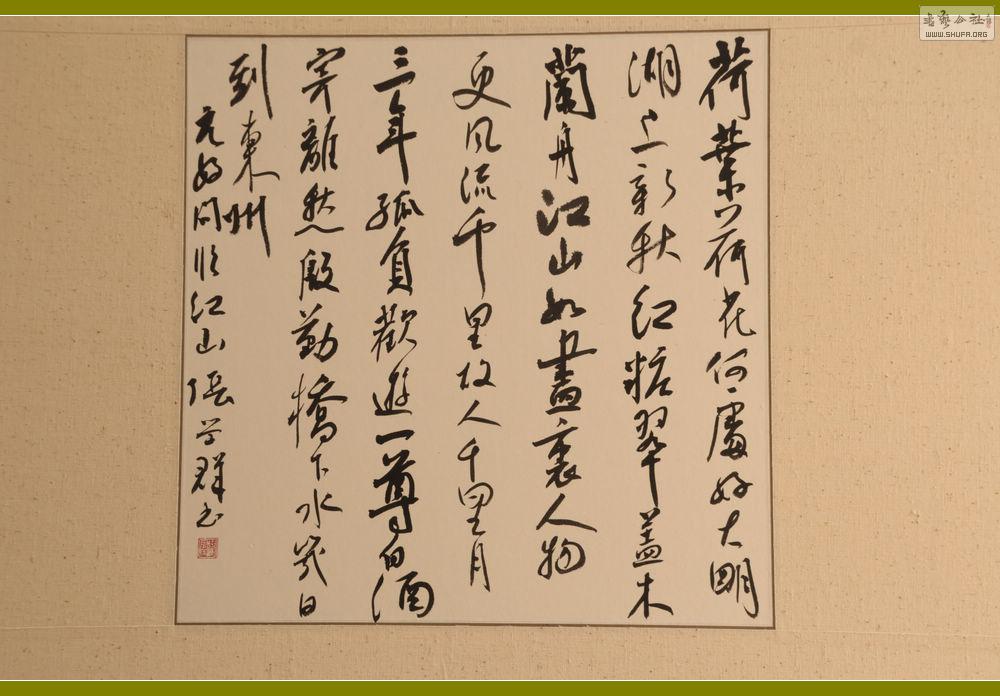 荷葉荷花何處好大明
湖上新秋红粧翠盖木
蘭舟江山如畫裏人物
更风流千里故人千里月
三年孤負歡遊一尊白酒
寄離愁殷勤橋下水幾日
到東州
元好问临江山 张学群书
書藝公社
WWW.SHUFA.ORG